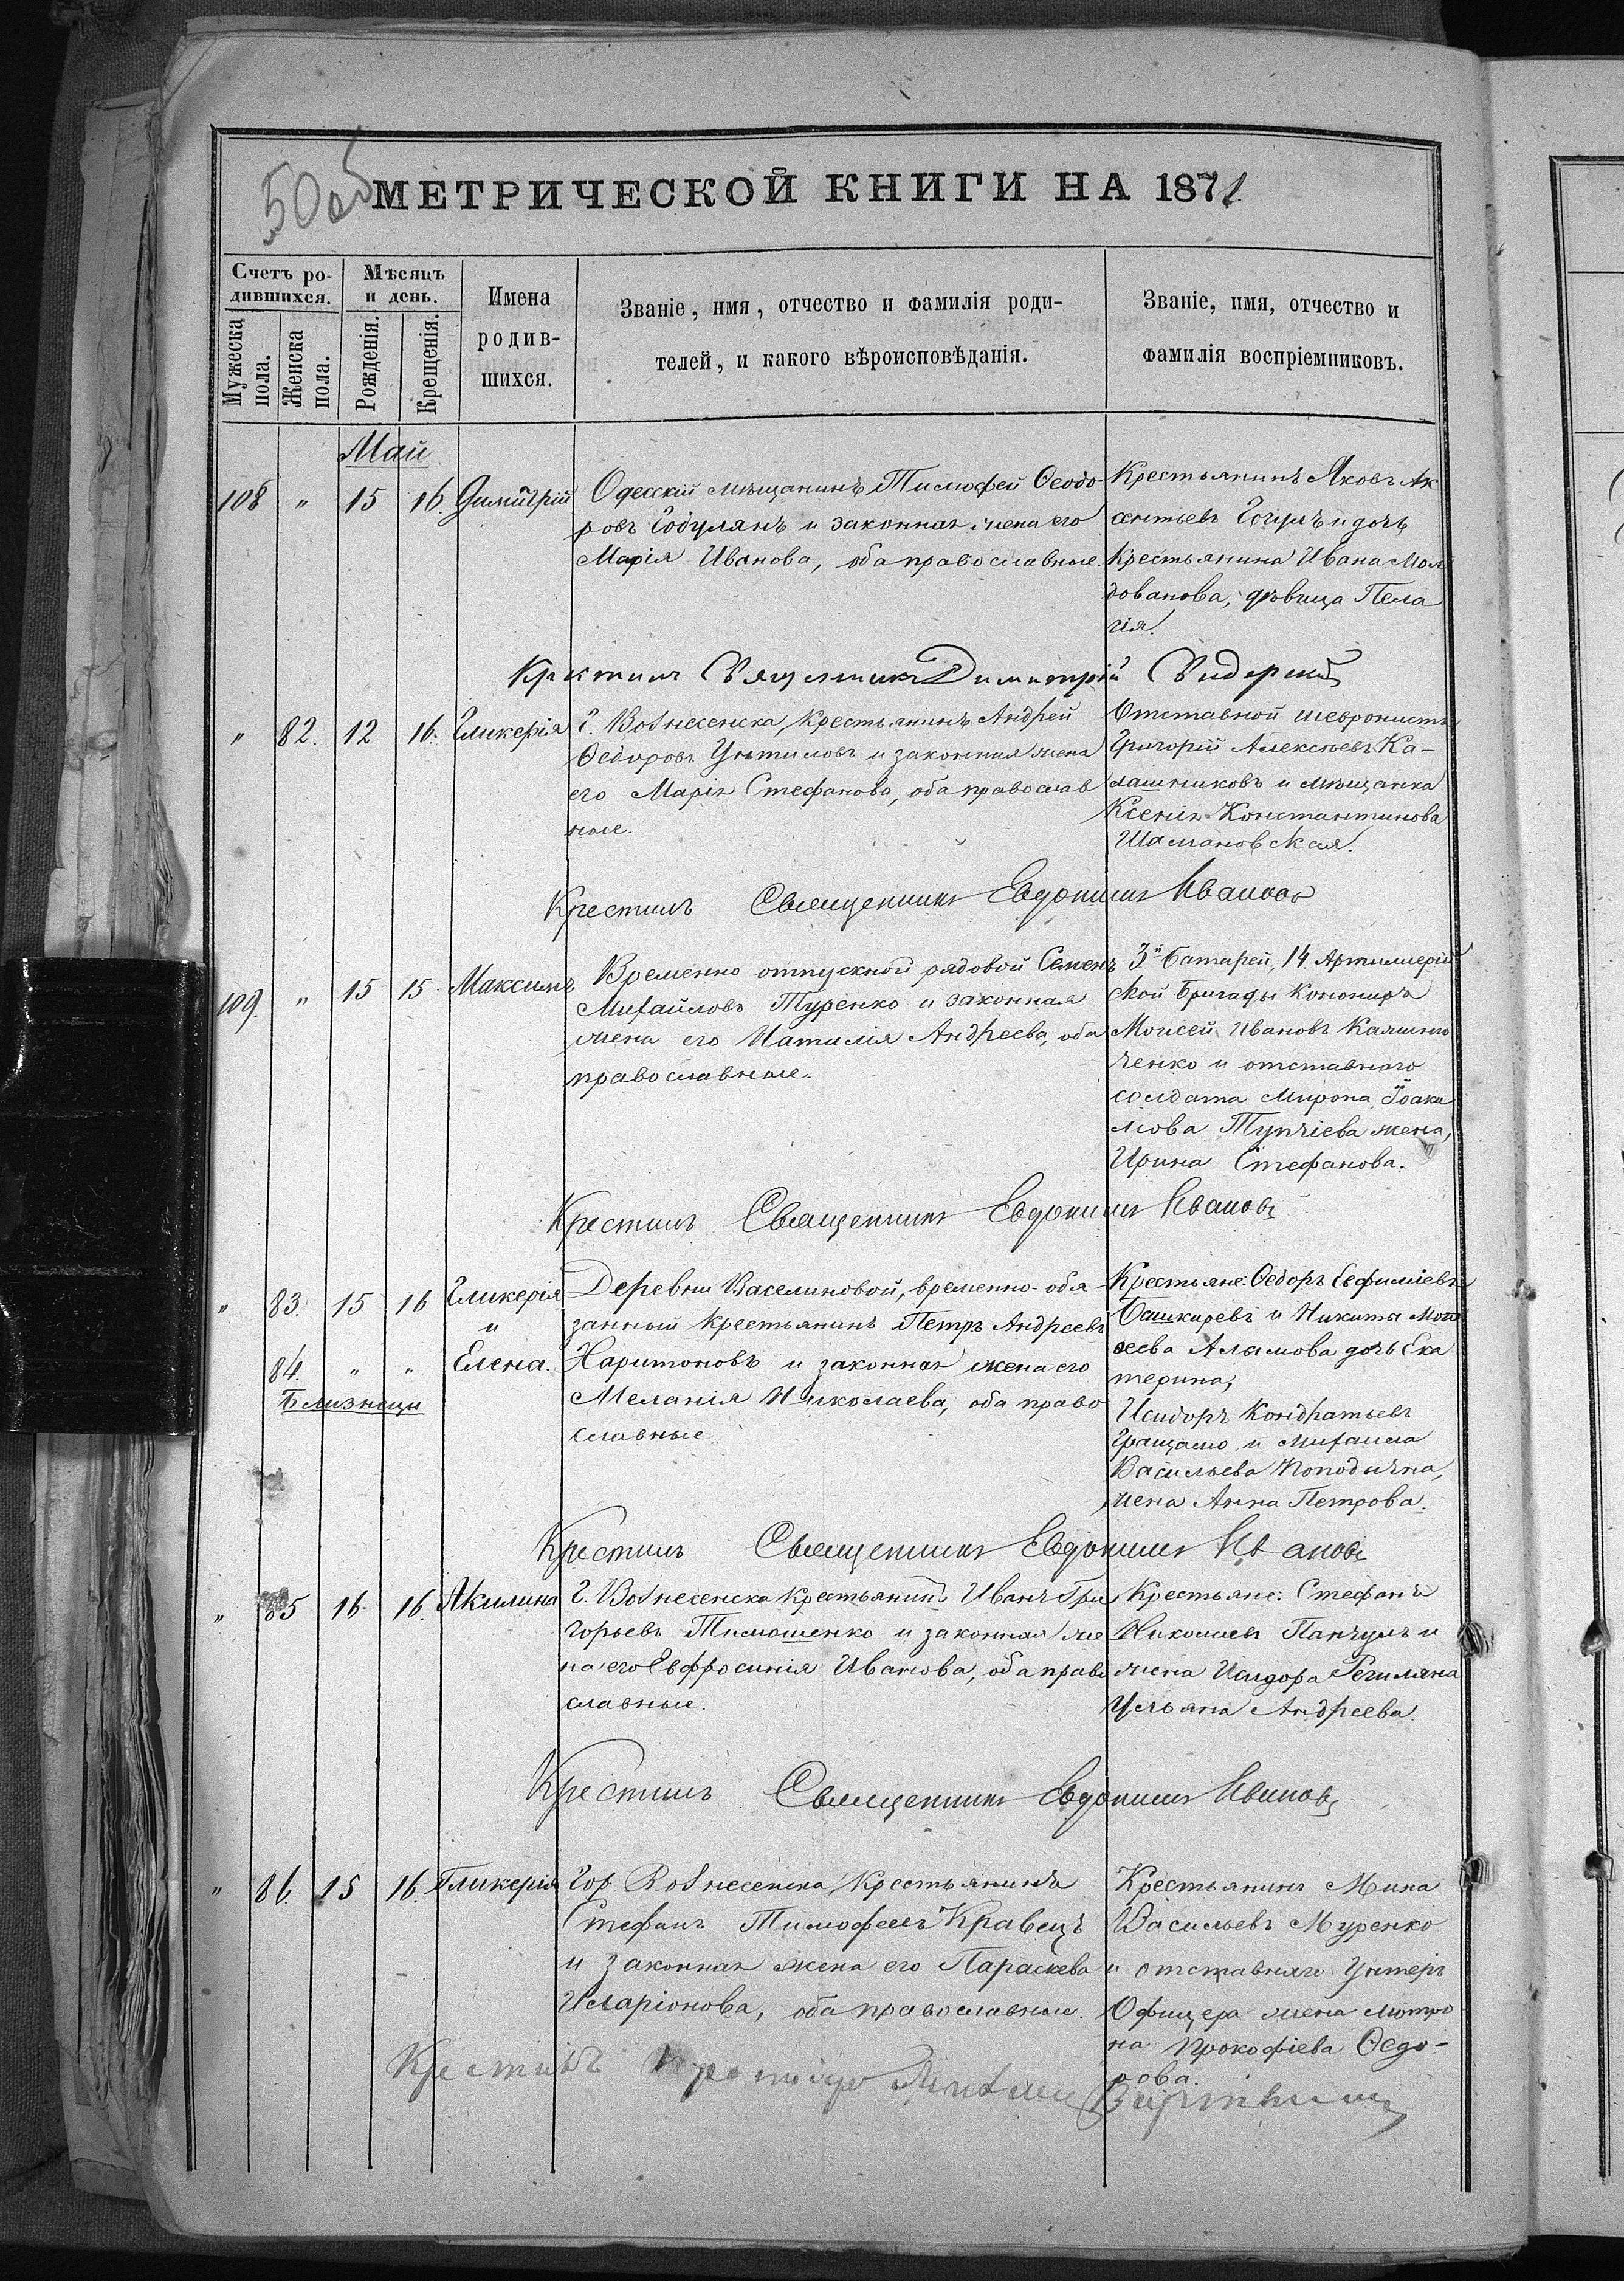 50об
МЕТРИЧЕСКОЙ КНИГИ НА 1871
Счетъ ро-
дившихся.
Мужеска пола.
Женска пола.
Мѣсяцъ
и день.
Рожденія.
Крещенія.
Имена
родив-
шихся.
Званіе, имя, отчество и фамилія роди-
телей, и какого вѣроисповѣданія.
Званіе, имя, отчество и
фамилія воспріемниковъ.
Май
108 " 15 16 Димитрій
Одесскій мѣщанинъ Тимофей Ѳеодо-
ровъ Годулянъ и законная жена его
Марія Иванова, оба православные.
Крестьянинъ Яковъ Ак
сентьевъ и дочь
крестьянина Ивана Мол
дованова, дѣвица Пела
гія.
Крстилъ Священникъ Димитрій
" 82. 12 16. Гликерія
Г. Вознесенска, Крестьянинъ Андрей
Ѳедоровъ и законная жена
его Марія Стефанова, оба православ
ные.
Отставной шевронистъ
Григорій Алексѣевъ Ка-
лашниковъ и мѣщанка
Ксенія Константинова
Шамановская.
Крестилъ Священникъ Евдокимъ Ивановъ
109. " 15 15 Максимъ
Временно отпускной рядовой Семенъ
Михайловъ Туренко и законная
жена его Наталія Андреева, оба
православные.
3й батарей, 14. Артиллерій
ской Бригады Канониръ
Моисей Ивановъ
ченко и отставнаго
солдата Мирона Іоаки
мова жена,
Ирина Стефанова.
Крестилъ Священникъ Евдокимъ Ивановъ
" 83. 15 16 Гликерія
и
84. " " Елена.
Близнецы
Деревни Васелиновой, временно-обя
занный крестьянинъ Петръ Андреевъ
Харитоновъ и законная жена его
Меланія Николаева, оба право
славные.
Крестьяне: Ѳедоръ Евфиміевъ
Башкиревъ и Никиты Мои
сеева Аламова дочь Ека
терина,
Исидоръ Кондратьевъ
и Михаила
Васильева
жена Анна Петрова.
Крестилъ Священникъ Евдокимъ Ивановъ
" 85 16 16. Акилина
Г. Вознесенска крестьянинъ Иванъ Гри
горьевъ Тимошенко и законная же
на его Евфросинія Иванова, оба право
славные.
Крестьяне: Стефанъ
Николаевъ и
жена Исидора
Ульяна Андреева.
Крестилъ Священникъ Евдокимъ Ивановъ
" 86. 15 16. Гликерія
Гор Вознесенска, Крестьянинъ
Стефанъ Тимофеевъ Кравецъ
и законная жена его Параскева
Иларіонова, оба православные.
Крестьянинъ Мина
Васильевъ Муренко
и отставнаго Унтеръ
Офицера жена Мотро
на Прокофіева Ѳедо-
рова.
Крестилъ